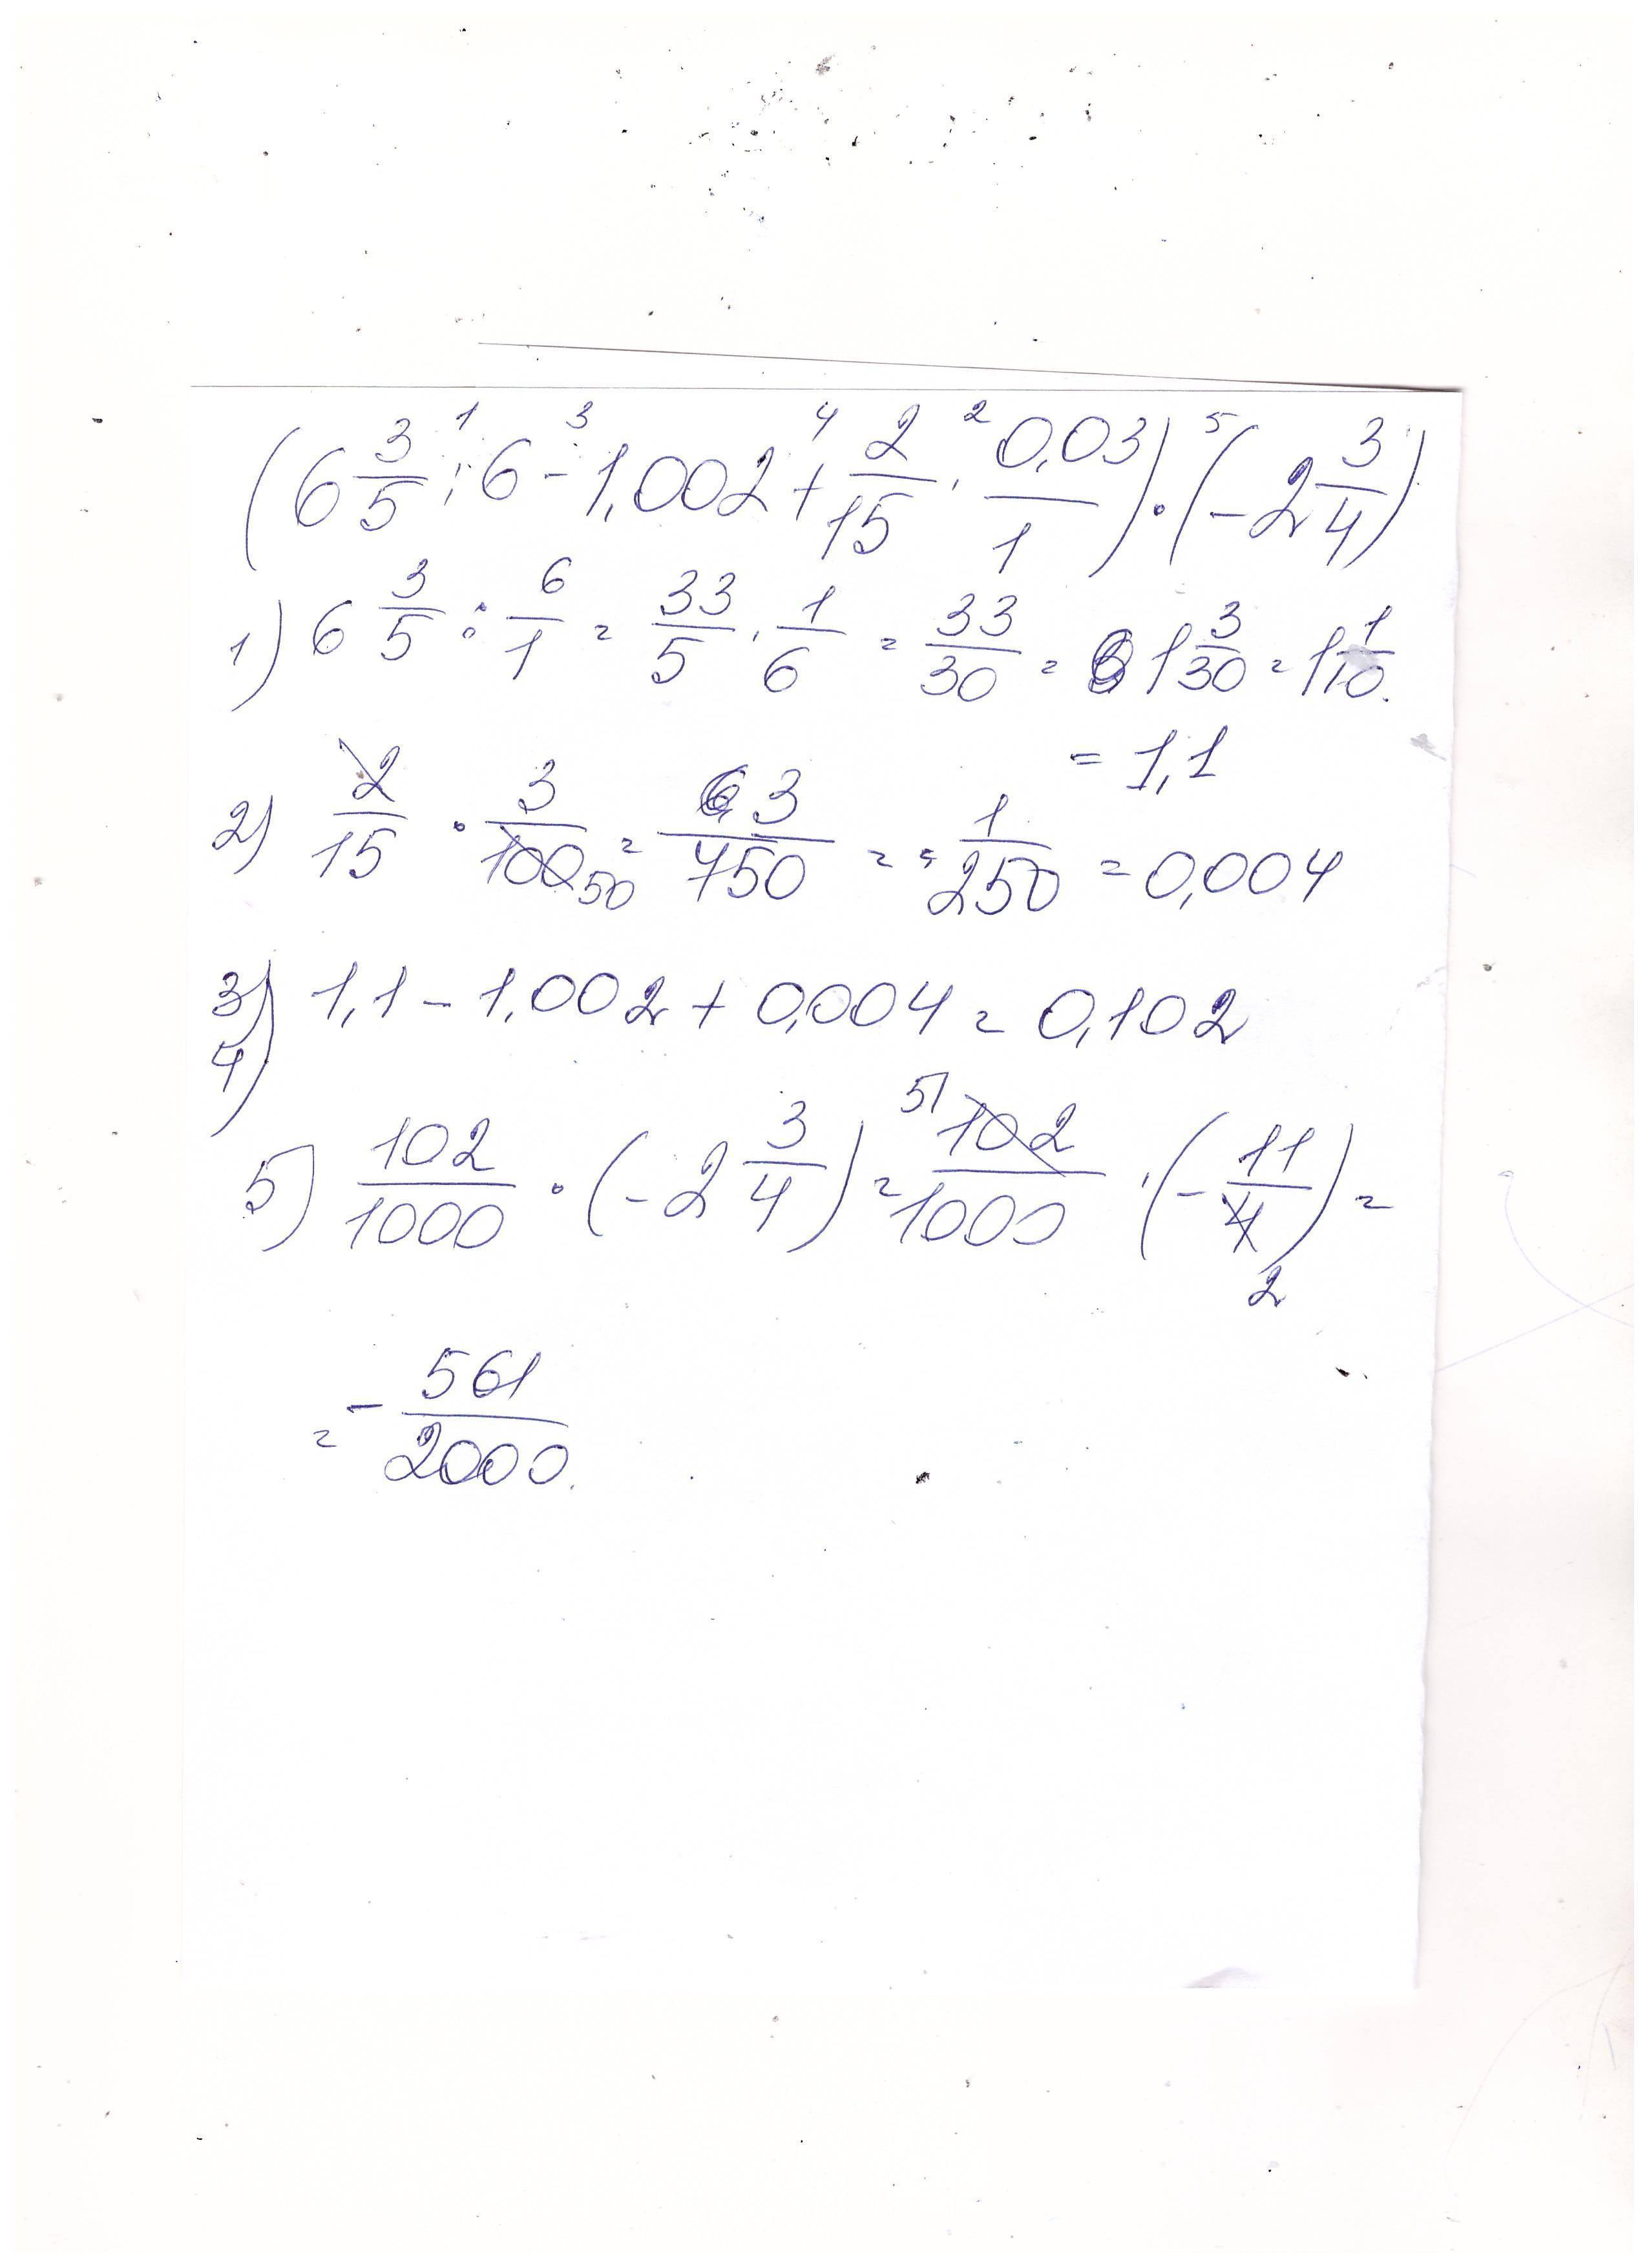 (6 3/5 : 6 - 1,002 + 2/15 · 0,03/1) · (-2 3/4)
1) 6 3/5 : 6/1 = 33/5 · 1/6 = 33/30 = 1 3/30 = 1 1/10
= 1,1
2) 2/15 · 3/100 50 = 3/750 = = 1/250 = 0,004
3) 4) 1,1 - 1,002 + 0,004 = 0,102
5) 102/1000 · (-2 3/4) = 51 102/1000 · (-11/4 2) =
= - 561/2000